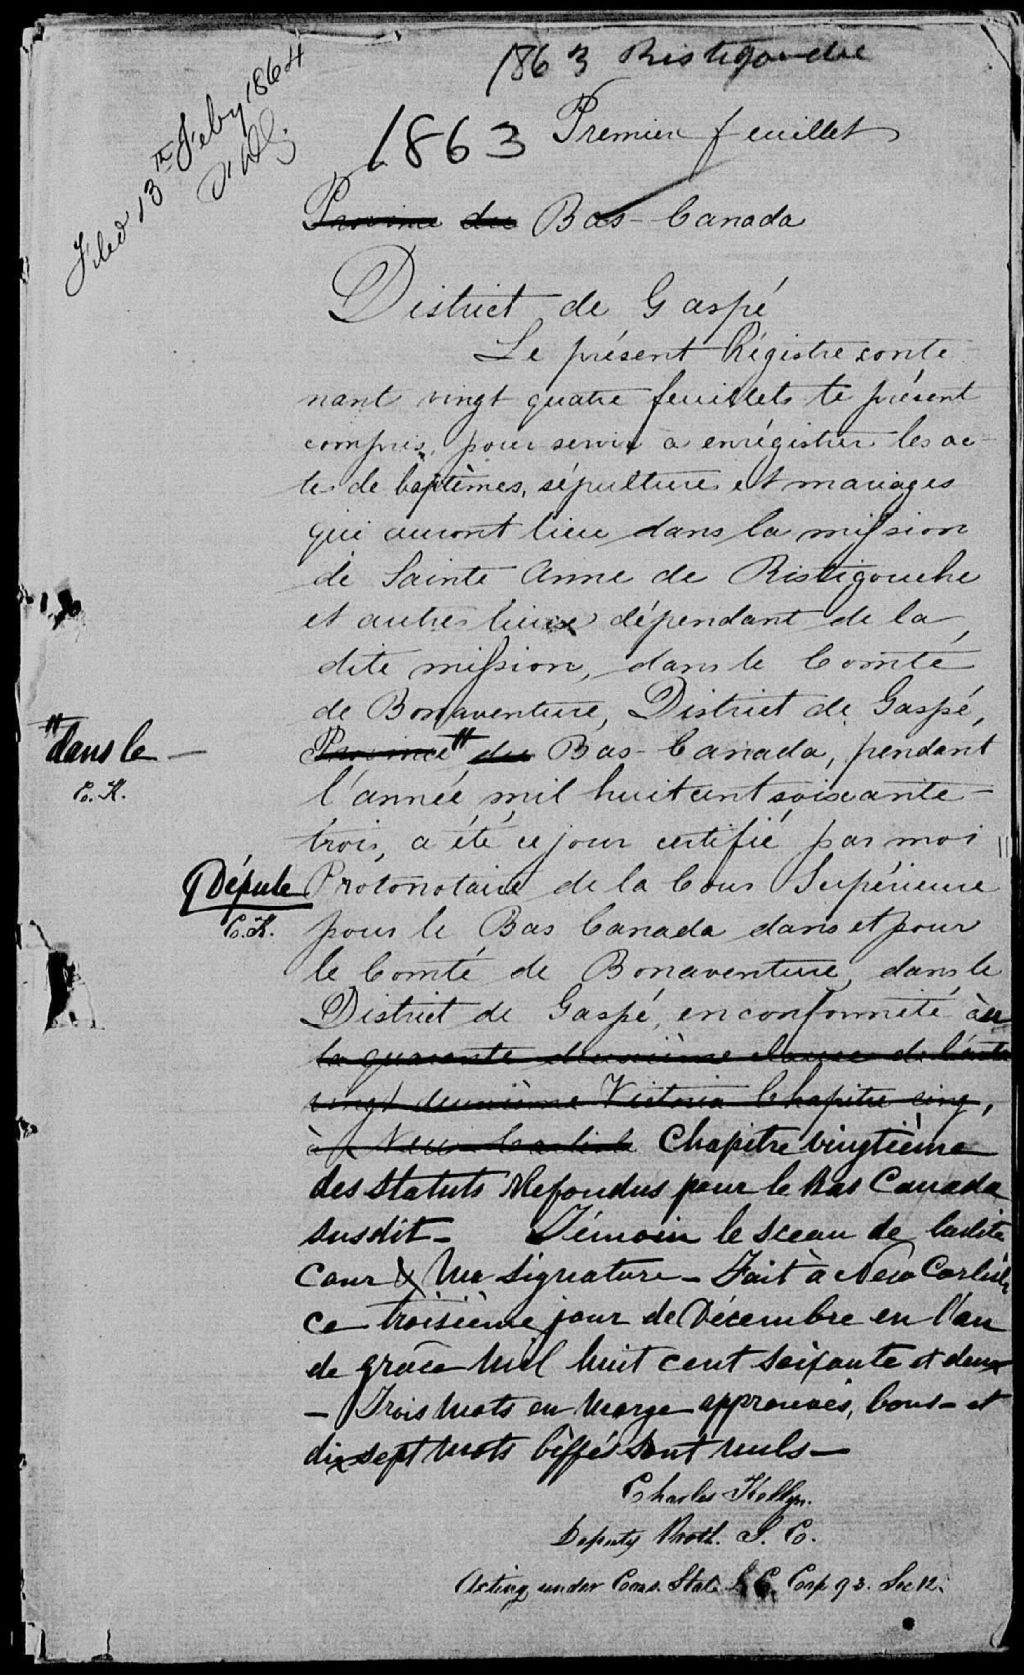 1863 Ristigouche
Filed 13th Feby 1864
1863 Premier feuillet
Province du Bas-Canada
District de Gaspé
Le présent Régistre conte
nant vingt quatre feuillets le présent
compris, pour servir a enrégistrer les ac-
te de baptèmes, sépulture et mariages
qui auront lieu dans la mission
de Sainte Anne de Ristigouche
et autres lieux dépendant de la
dite mission, dans le Comté
de Bonaventure, District de Gaspé,
Province " du Bas-Canada, pendant
" dans le —
C. K.
l'année mil huit cent soixante-
trois, a été ce jour certifié par moi
Député Protonotaire de la Cour Supérieure
C. K.
pour le Bas Canada dans et pour
le Comté de Bonaventure, dans le
District de Gaspé, en conformité au
la quarante deuxième clause de l'acte
vingt deuxième Victoria Chapitre cinq,
à New Carlisle Chapitre vingtième
des Statuts Refondus pour le Bas Canada
susdit- Témoin le sceau de ladite
Cour & Ma signature - Fait à New Carlisle
ce troisième jour de Décembre en l'an
de grâce Mil huit cent soixante et deux
- Trois Mots en Marge approuvés, bons - et
dix sept Mots biffés sont nuls -
Charles Kelly.
Deputy Proth. S. C.
Acting under Cons. Stat. L. C. Cap 93. Sec 12.